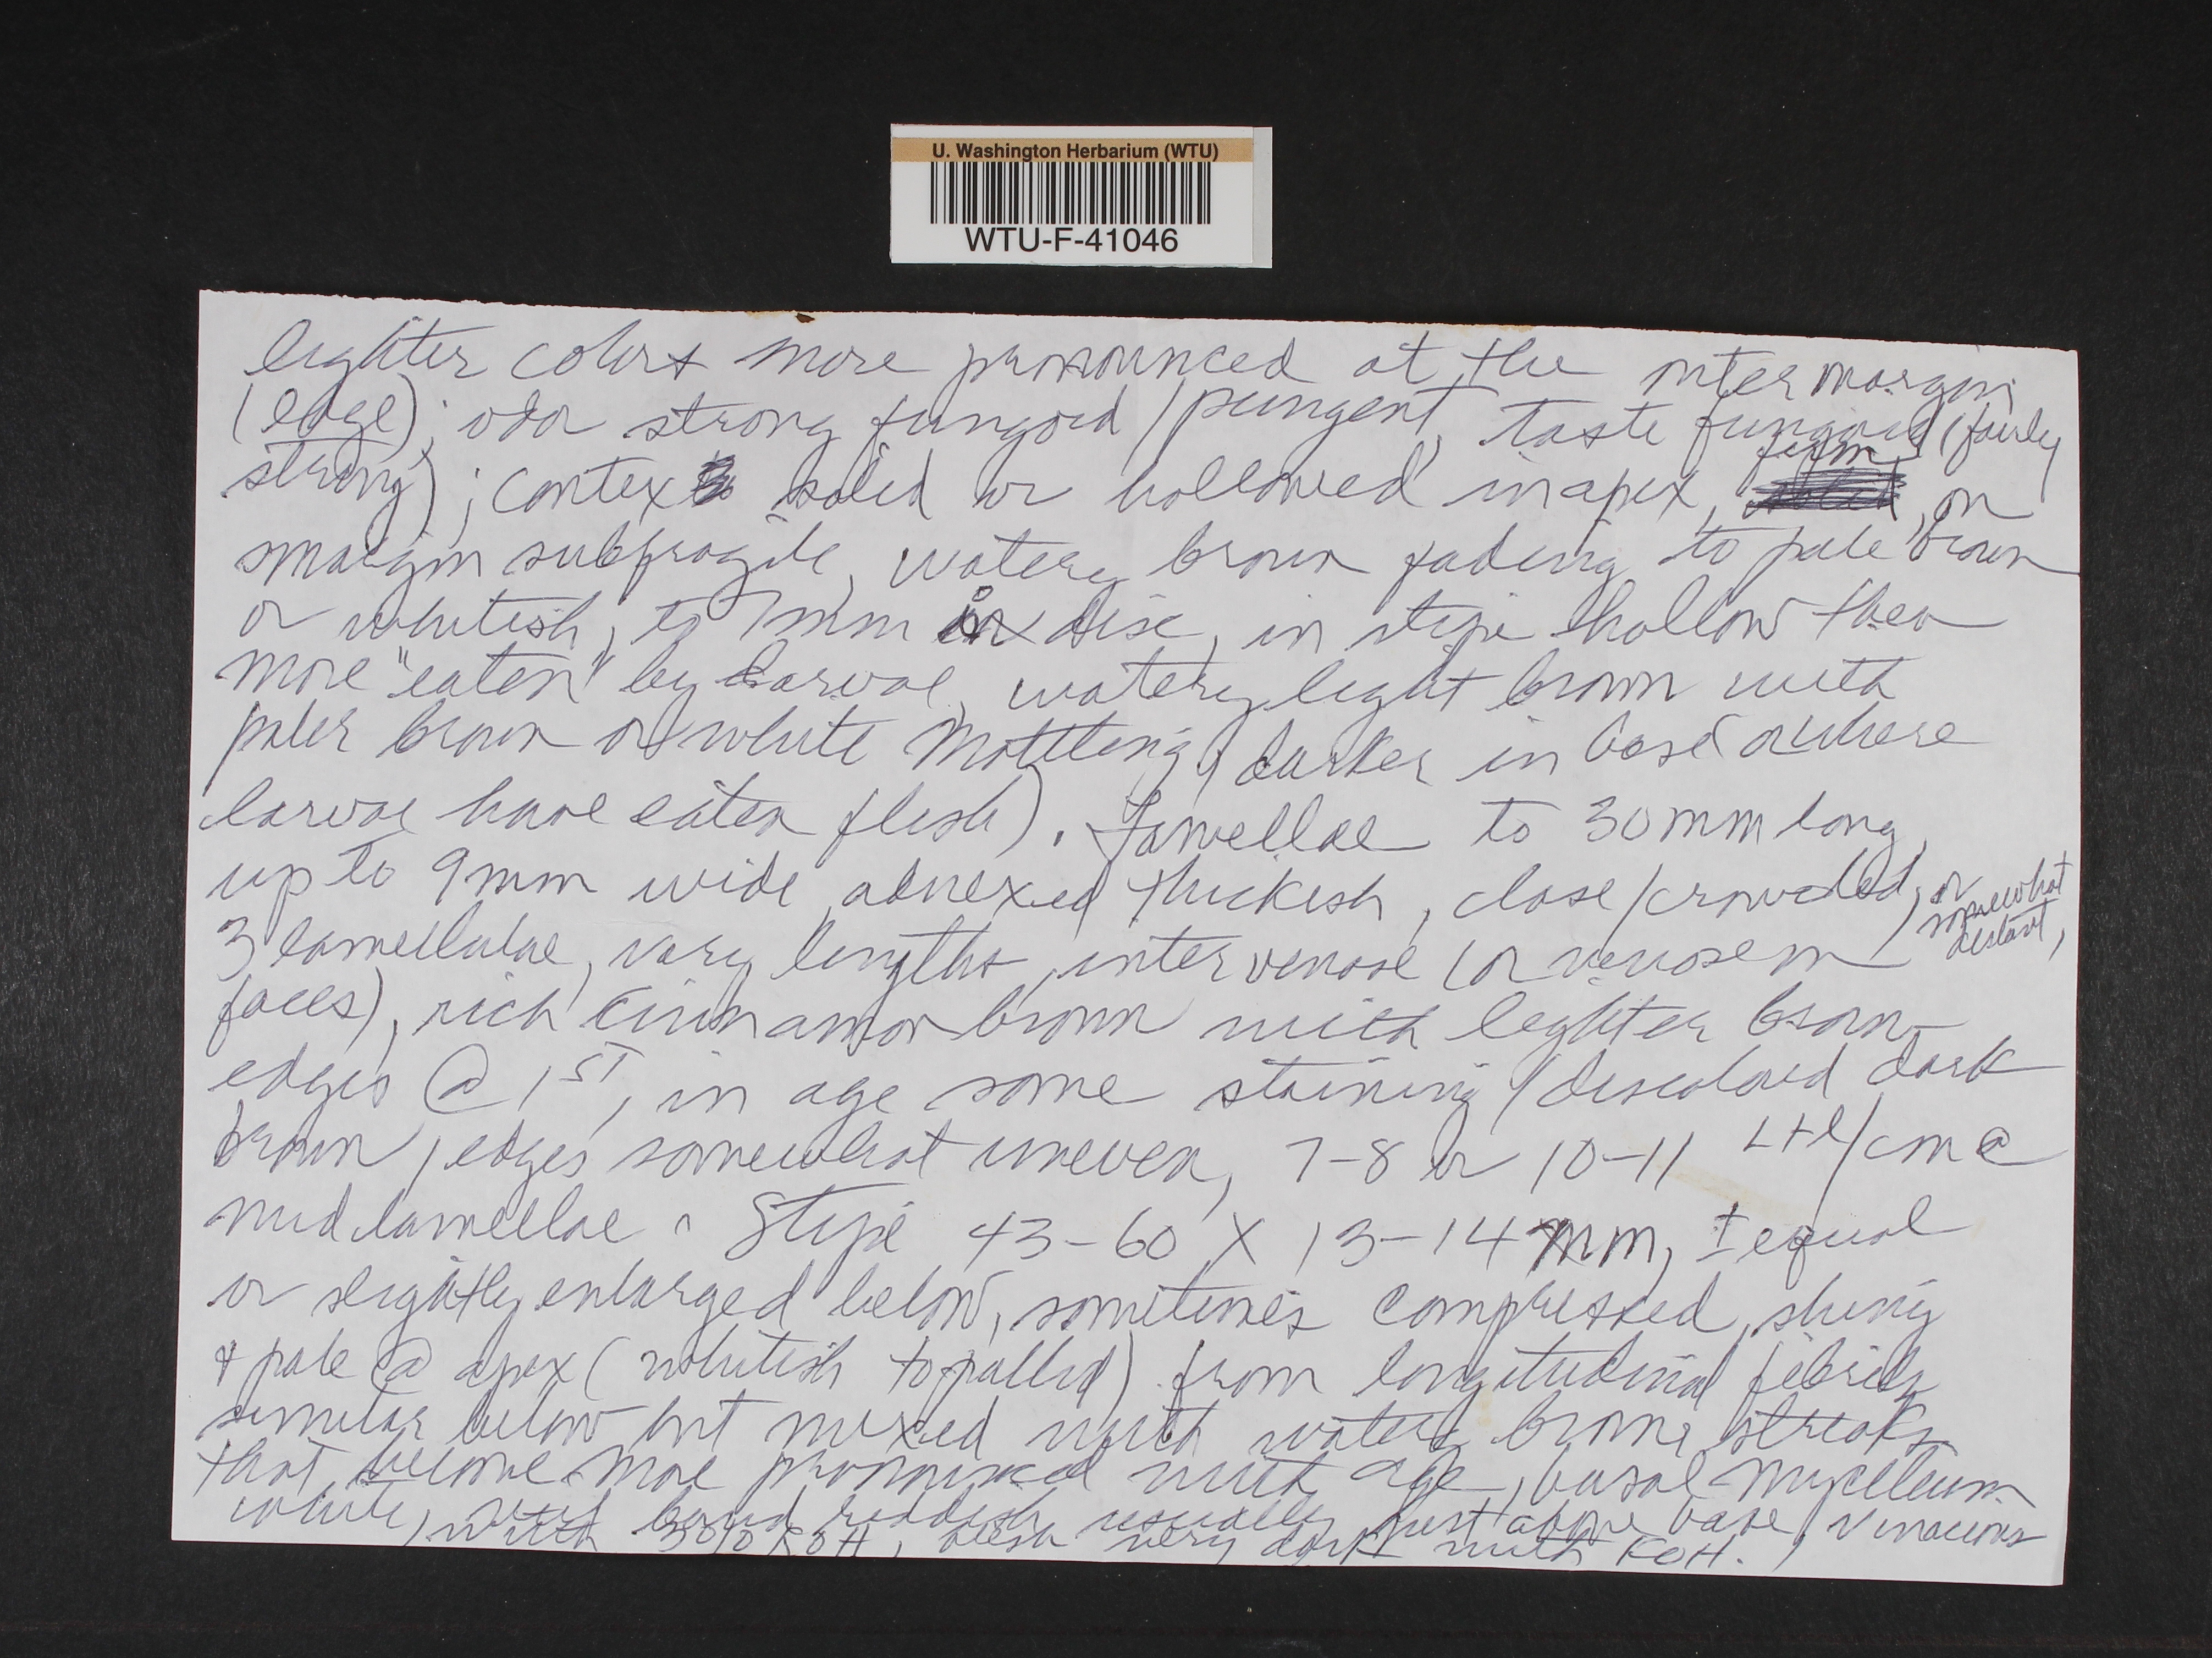 U. Washington Herbarium (WTU)
WTU-F-41046
lighter colors more pronounced at the outer margin
(edge); odor strong fungoid/pungent, taste fungoid (fairly
strong); context solid or hollowed in apex, firm, on
margin subfragile, watery brown fading to pale brown
or whitish, to 7mm in disc, in stipe hollow then
more "eaten" by larvae, watery light brown with
paler brown or white mottling, darker in base (or where
larvae have eaten flesh). Lamellae to 30mm long,
up to 9mm wide, adnexed, thickish, close/crowded, or somewhat distant,
3 lamellulae, vary lengths, intervenose (or venose on
faces), rich cinnamon brown with lighter brown
edges @ 1ST, in age some staining/discolored dark
brown, edges somewhat uneven, 7-8 or 10-11 L+l/cm @
mid lamellae. Stipe 43-60 X 13-14mm, ± equal
or slightly enlarged below, sometimes compressed, shiny
& pale @ apex (whitish to pallid) from longitudinal fibrils
similar below but mixed with watery brown streaks
that become more pronounced with age, basal mycelium
white, band reddish usually just above base, vinaceous
with 30% KOH, flesh very dark with KOH.